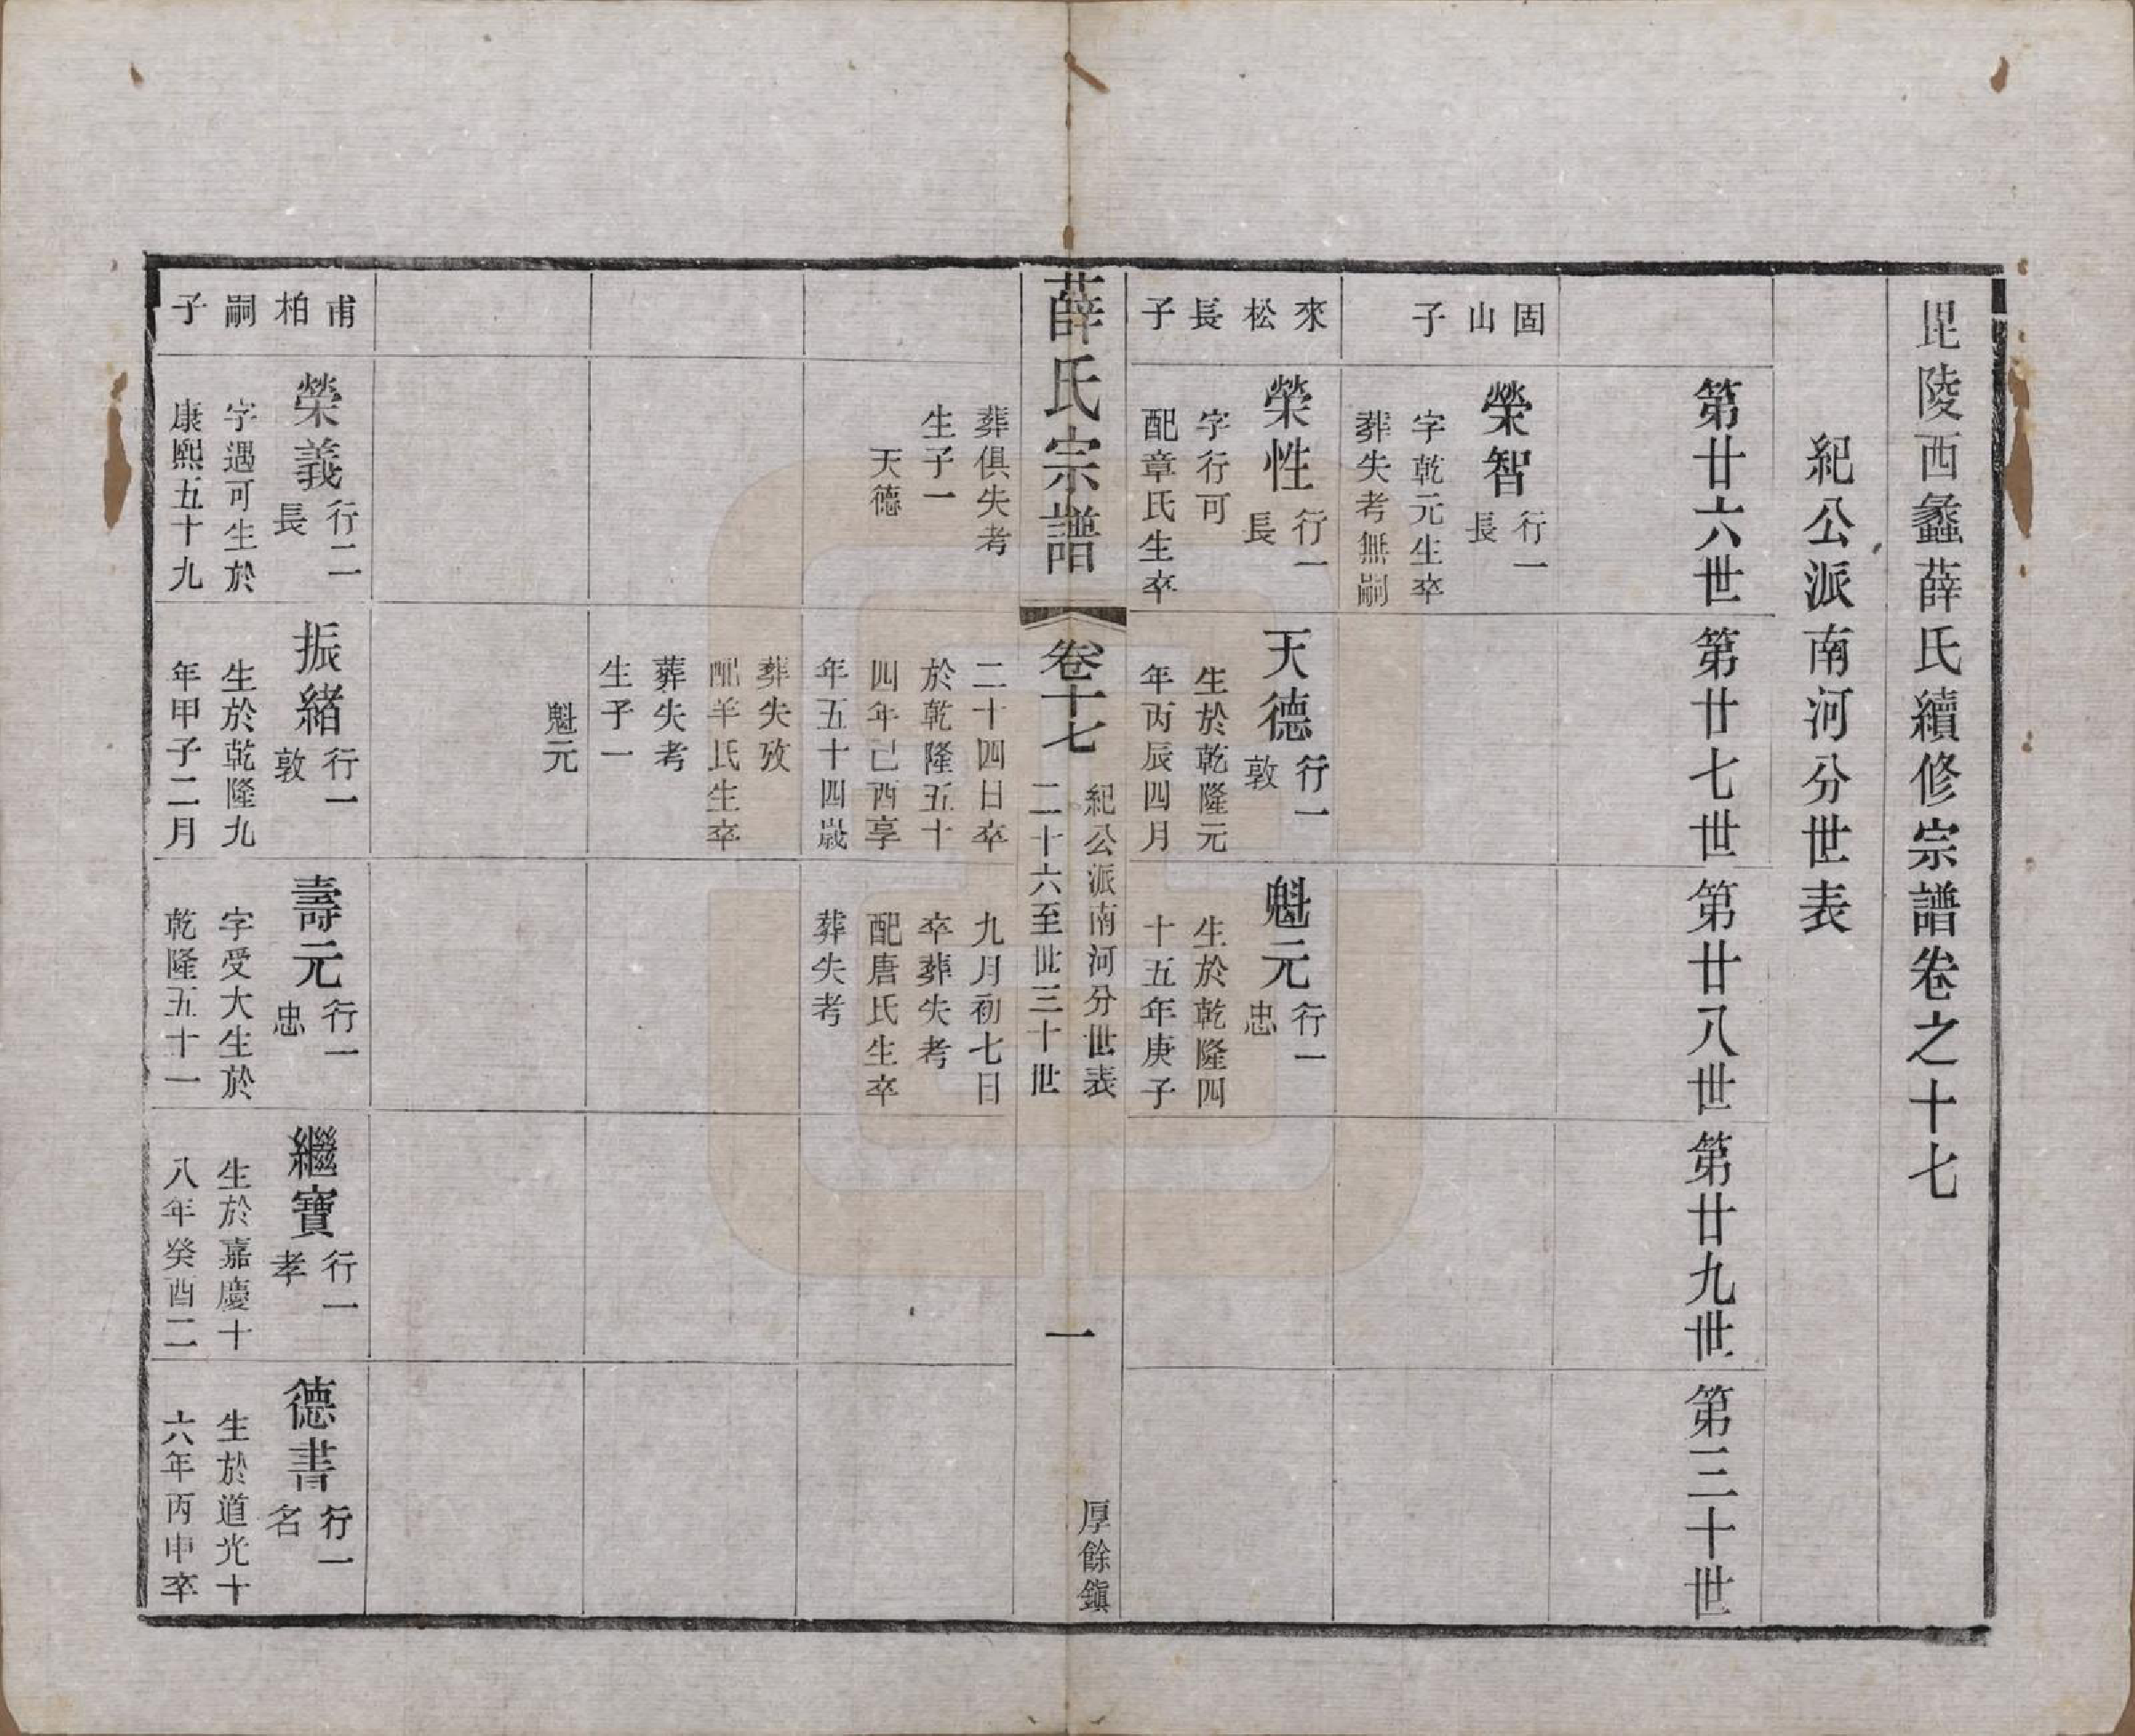 毘陵西蠡薛氏續修宗譜卷之十七
紀公派南河分世表
第廿六世
第廿七世
第廿八世
第廿九世
第三十世
固
山
子
榮智
行一
長
字乾元生卒
葬失考無嗣
來
松
長
子
榮性
行一
長
字行可
配章氏生卒
葬俱失考
生子一
天德
天德
行一
敦
生於乾隆元
年丙辰四月
二十四日卒
於乾隆五十
四年己酉享
年五十四歲
葬失攷
配羊氏生卒
葬失考
生子一
魁元
魁元
行一
忠
生於乾隆四
十五年庚子
九月初七日
卒葬失考
配唐氏生卒
葬失考
薛氏宗譜
卷十七
紀公派南河分世表
二十六至世三十世
一
厚餘鎭
甫
柏
嗣
子
榮義
行二
長
字遇可生於
康熙五十九
振緒
行一
敦
生於乾隆九
年甲子二月
壽元
行一
忠
字受大生於
乾隆五十一
繼寶
行一
孝
生於嘉慶十
八年癸酉二
德書
行一
名
生於道光十
六年丙申卒